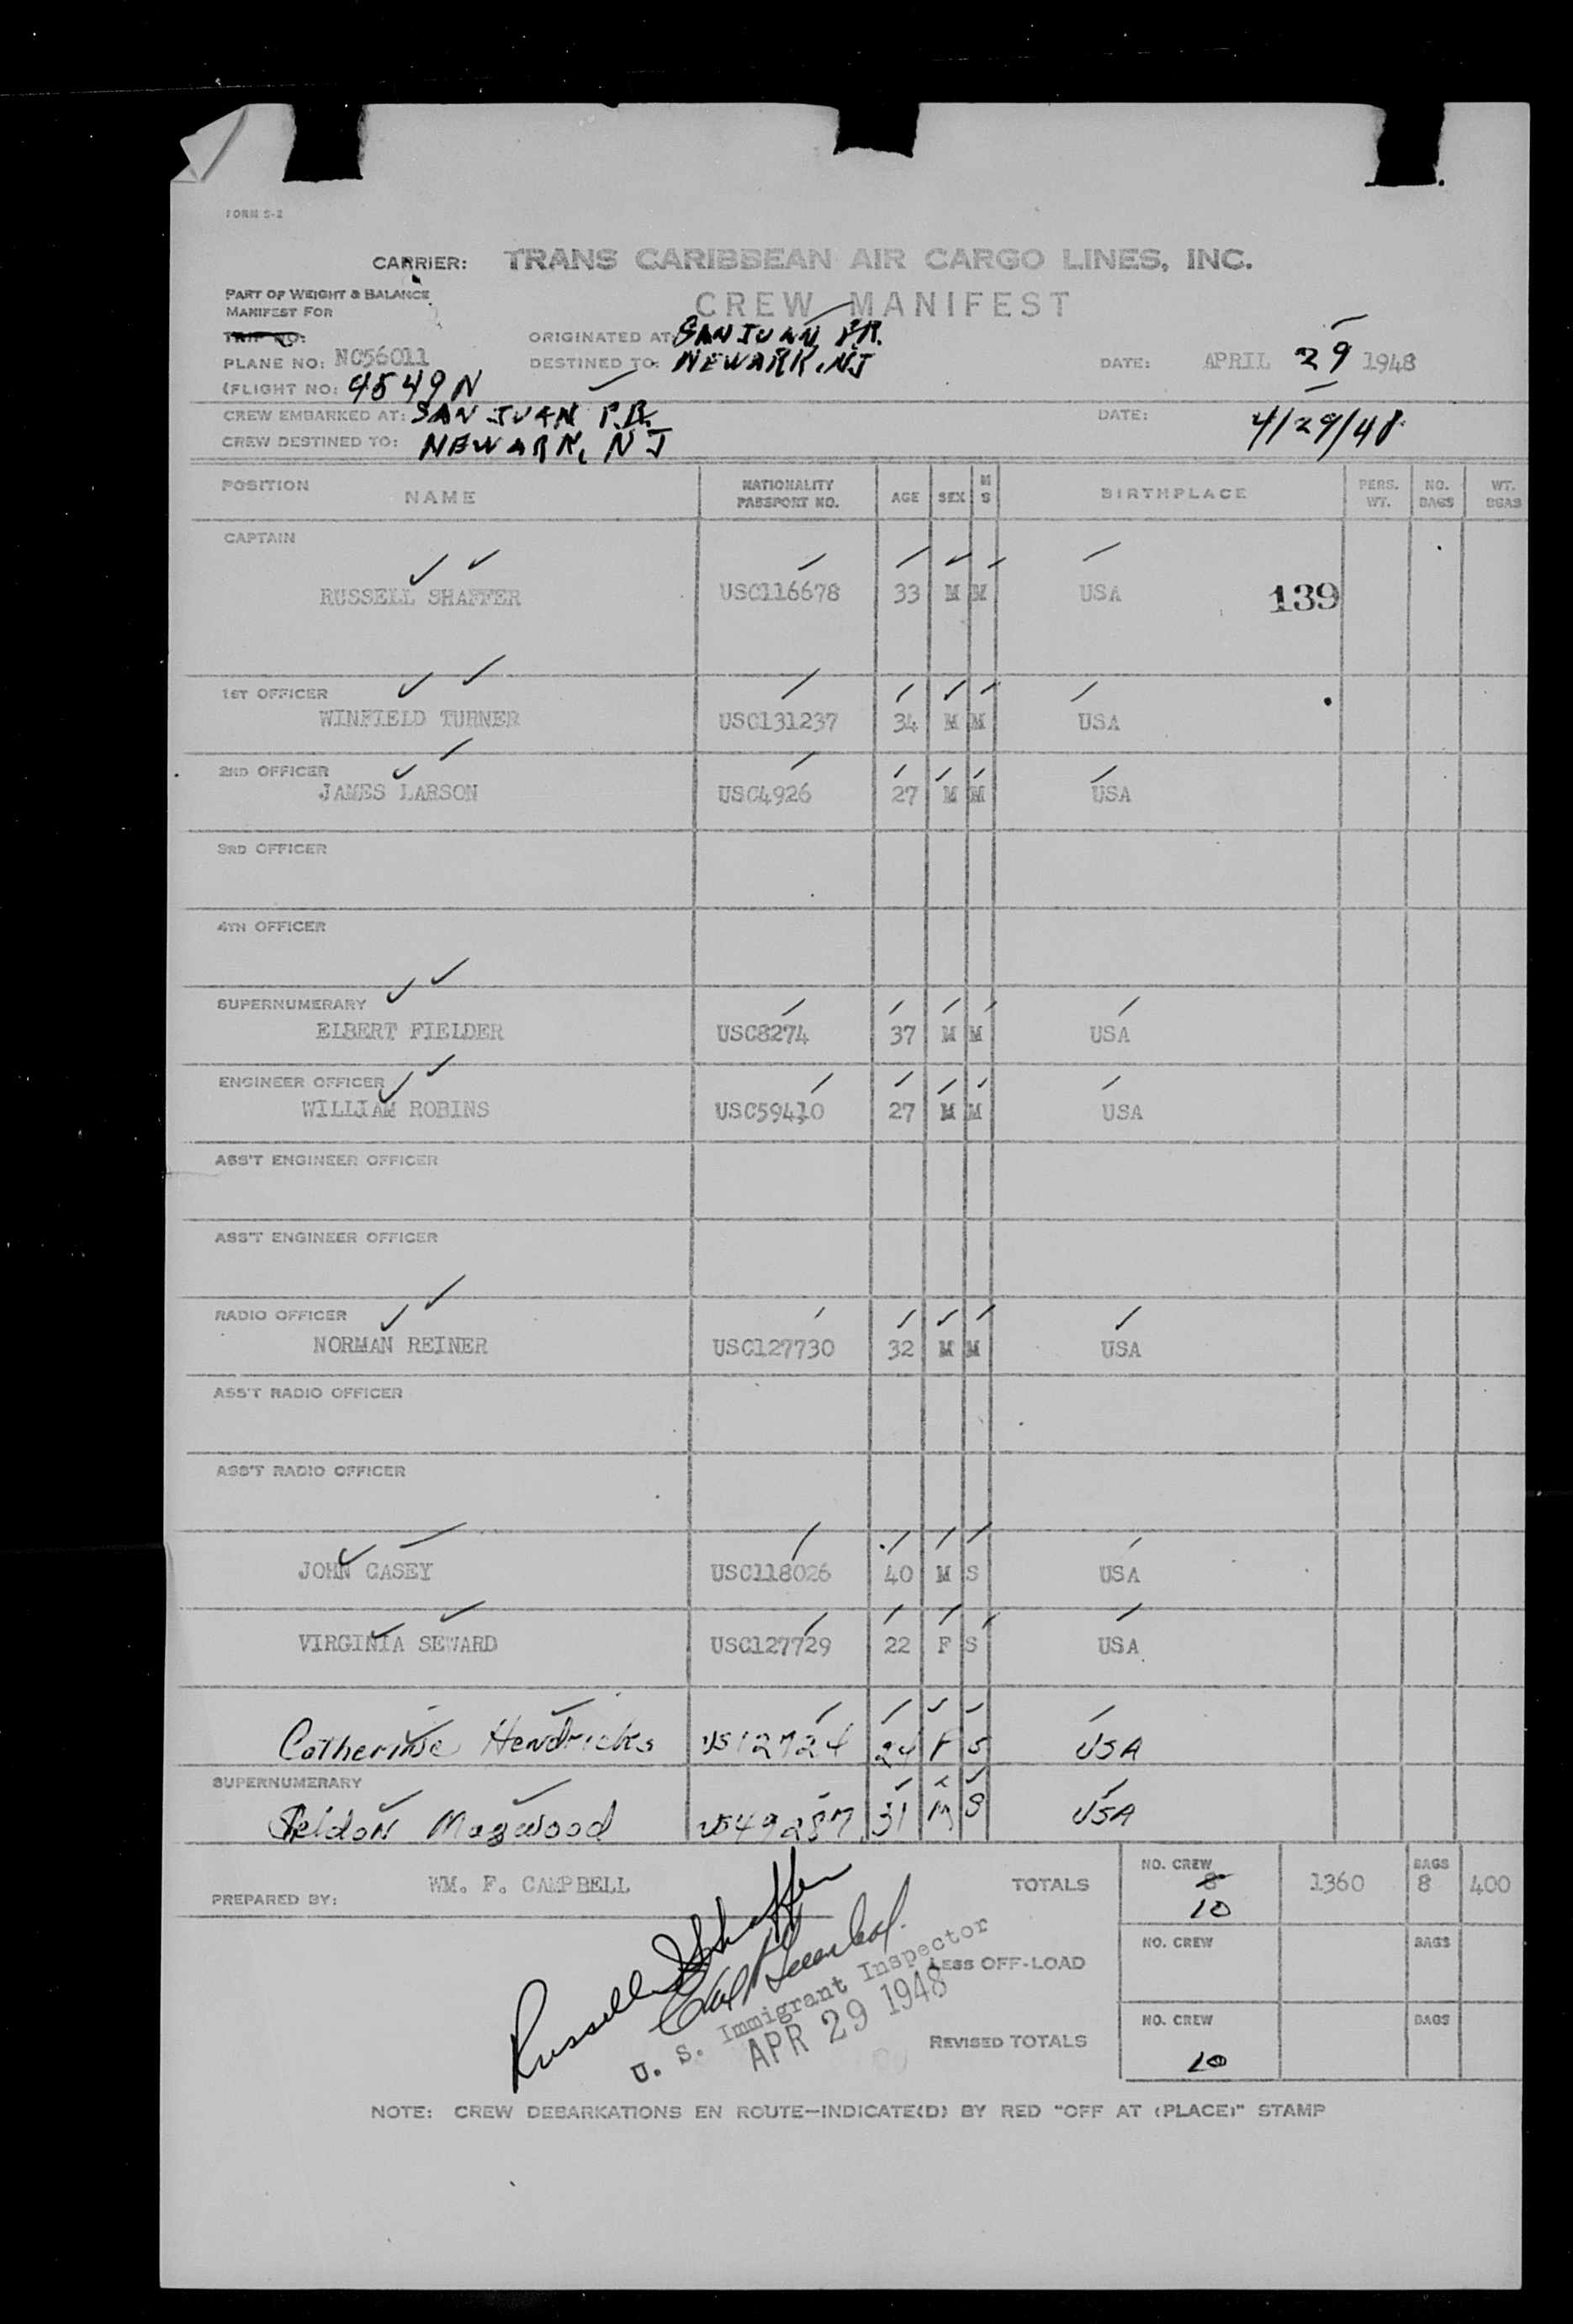 FORM S-2
CARRIER: TRANS CARIBBEAN AIR CARGO LINES, INC.
PART OF WEIGHT & BALANCE
MANIFEST FOR
CREW MANIFEST
TRIP NO:
ORIGINATED AT: SAN JUAN P.R.
PLANE NO: NC56011
DESTINED TO: NEWARK, NJ
DATE: APRIL 29 1948
(FLIGHT NO: 4549N
CREW EMBARKED AT: SAN JUAN P.R.
DATE: 4/29/48
CREW DESTINED TO: NEWARK, NJ
POSITION NAME NATIONALITY PASSPORT NO. AGE SEX M S BIRTHPLACE PERS. WT. NO. BAGS WT. BGAS
CAPTAIN
RUSSELL SHAFFER USC116678 33 M M USA 139
1ST OFFICER
WINFIELD TURNER USC131237 34 M M USA
2ND OFFICER
JAMES LARSON USC4926 27 M M USA
3RD OFFICER
4TH OFFICER
SUPERNUMERARY
ELBERT FIELDER USC8274 37 M M USA
ENGINEER OFFICER
WILLIAM ROBINS USC59410 27 M M USA
ASS'T ENGINEER OFFICER
ASS'T ENGINEER OFFICER
RADIO OFFICER
NORMAN REINER USC127730 32 M M USA
ASS'T RADIO OFFICER
ASS'T RADIO OFFICER
JOHN CASEY USC118026 40 M S USA
VIRGINIA SEWARD USC127729 22 F S USA
Catherine Hendricks US12724 24 F S USA
SUPERNUMERARY
Seldon Magwood US49287 31 M S USA
PREPARED BY: WM. F. CAMPBELL
TOTALS NO. CREW 8 10 1360 BAGS 8 400
Russell Shaffer
U. S. Immigrant Inspector
APR 29 1948
LESS OFF-LOAD NO. CREW BAGS
REVISED TOTALS NO. CREW 10 BAGS
NOTE: CREW DEBARKATIONS EN ROUTE—INDICATE(D) BY RED "OFF AT (PLACE)" STAMP